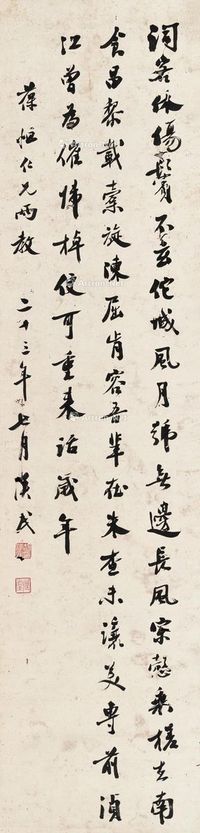 詞客休傷鬢不玄佗城風月號無邊長風宗愨乘槎去南
食昌黎載橐旋陳屈肯容吾輩在朱查未讓美專前湞
江曾為催歸棹便可重來話歲年
葆恒仁兄兩教 二十三年七月 漢民